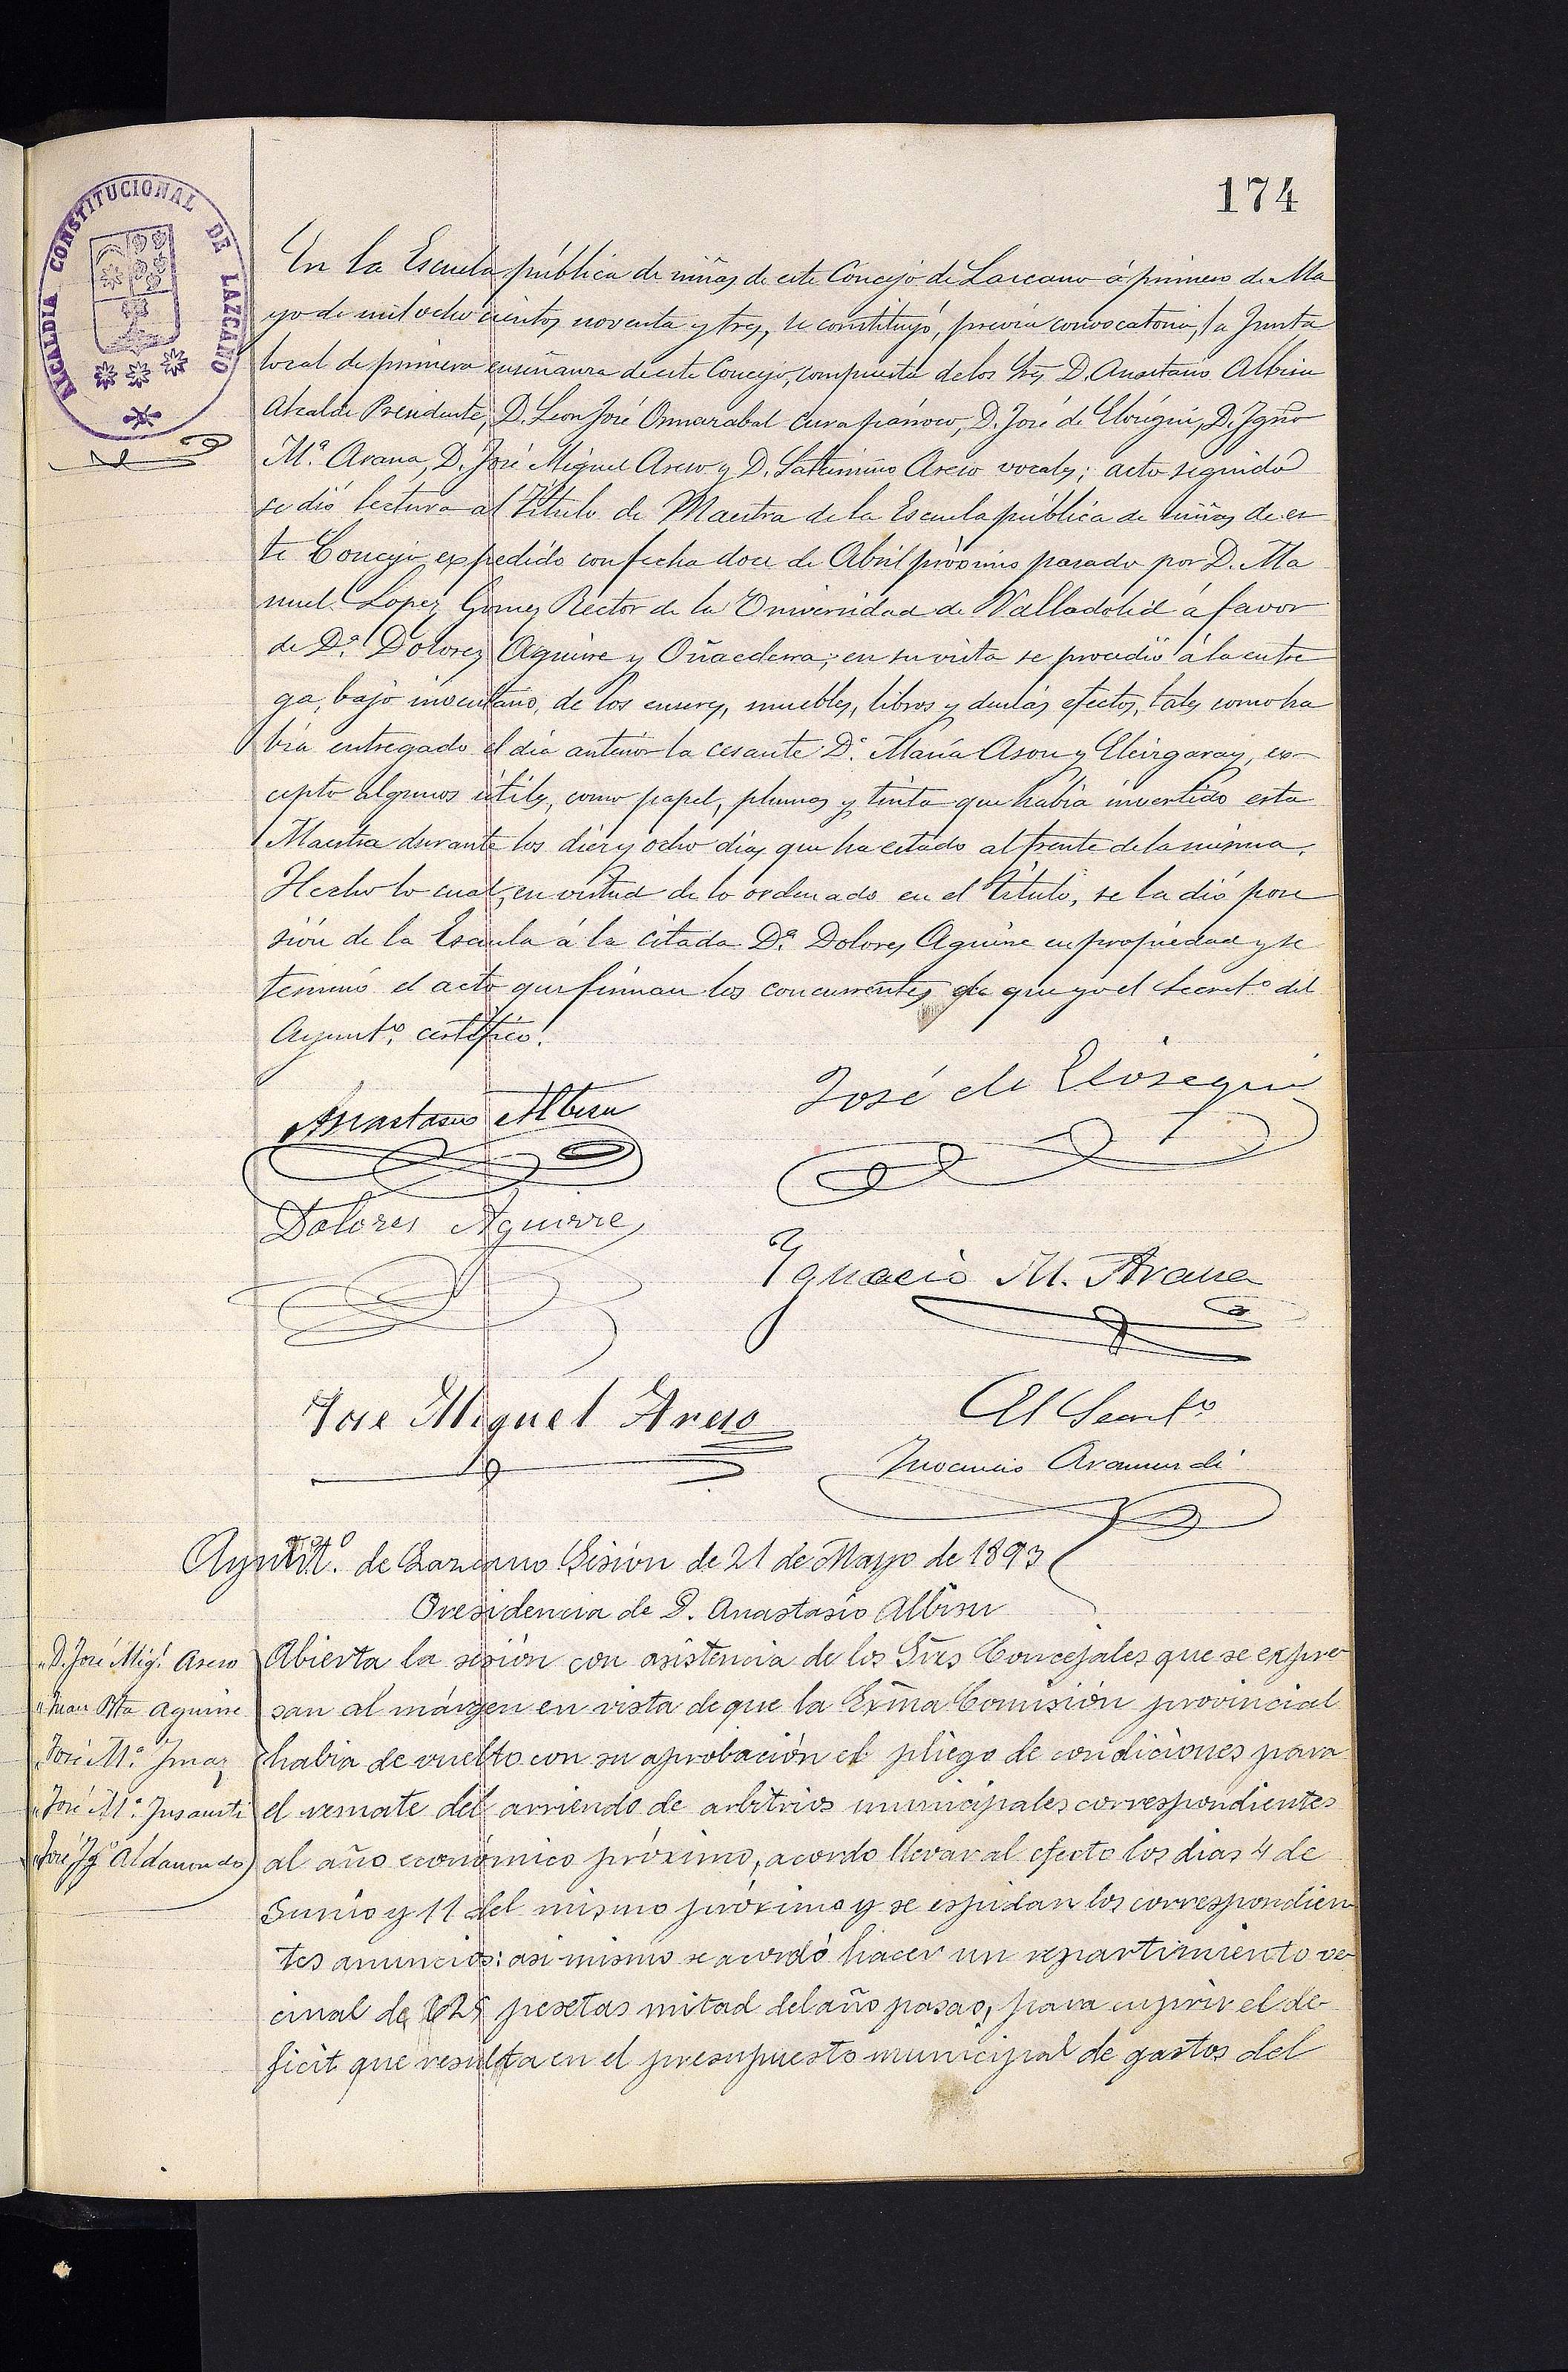 174
ALCALDIA CONSTITUCIONAL DE LAZCANO
En la Escuela pública de niñas de este Concejo de Lazcano á primero de Ma
yo de mil ocho cientos noventa y tres, se constituyó, previa convocatoria, la Junta
local de primera enseñanza de este Concejo, compuesta de los Sres D. Anastasio Albisu
Alcalde Presidente, D. Leon José Ormazabal cura párroco, D. José de Elósegui, D. Igno
M.ª Arana, D. José Miguel Areso y D. Saturnino Areso vocales; acto seguido
se dió lectura al Título de Maestra de la Escuela pública de niñas de es
te Concejo expedido con fecha doce de Abril próximo pasado por D. Ma
nuel Lopez Gomez Rector de la Universidad de Valladolid á favor
de D.ª Dolores Aguirre y Oñaederra; en su vista se procedió á la entre
ga, bajo inventario, de los enseres, muebles, libros y demás efectos, tales como ha
bia entregado el dia anterior la cesante D.ª María Ason y Eleizgaray, ex-
cepto algunos útiles, como papel, plumas y tinta que había invertido esta
Maestra durante los diez y ocho días que ha estado al frente de la misma.
Hecho lo cual, en virtud de lo ordenado en el Título, se la dió pose
sión de la Escuela á la citada D.ª Dolores Aguirre en propiedad y se
terminó el acto que firman los concurrentes de que yo el Secret.º del
Ayunt.º certifico.
Anastasio Albisu
José de Elósegui
Dolores Aguirre
Ygnacio M. Arana
Jose Miguel Areso
El Secret.º
Inocencio Aramendi
Ayunt.º de Lazcano Sesión de 21 de Mayo de 1893
Presidencia de D. Anastasio Albisu
"D. José Mig.l Areso
"Juan Bta Aguirre
"José M.ª Imaz
"José M.ª Insausti
"José Ig.º Aldanondo
Abierta la sesión con asistencia de los Sres Concejales que se expre
san al márgen en vista de que la Exma Comisión provincial
habia de vuelto con su aprobación el pliego de condiciones para
el remate del arriendo de arbitrios municipales correspondientes
al año económico próximo, acordo llevar al efecto los dias 4 de
Junio y 11 del mismo próximo y se espidan los correspondien
tes anuncios: asi mismo se acordó hacer un repartimiento ve
cinal de 625 pesetas mitad del año pasao, para cuprir el de
ficit que resulta en el presupuesto municipal de gastos del